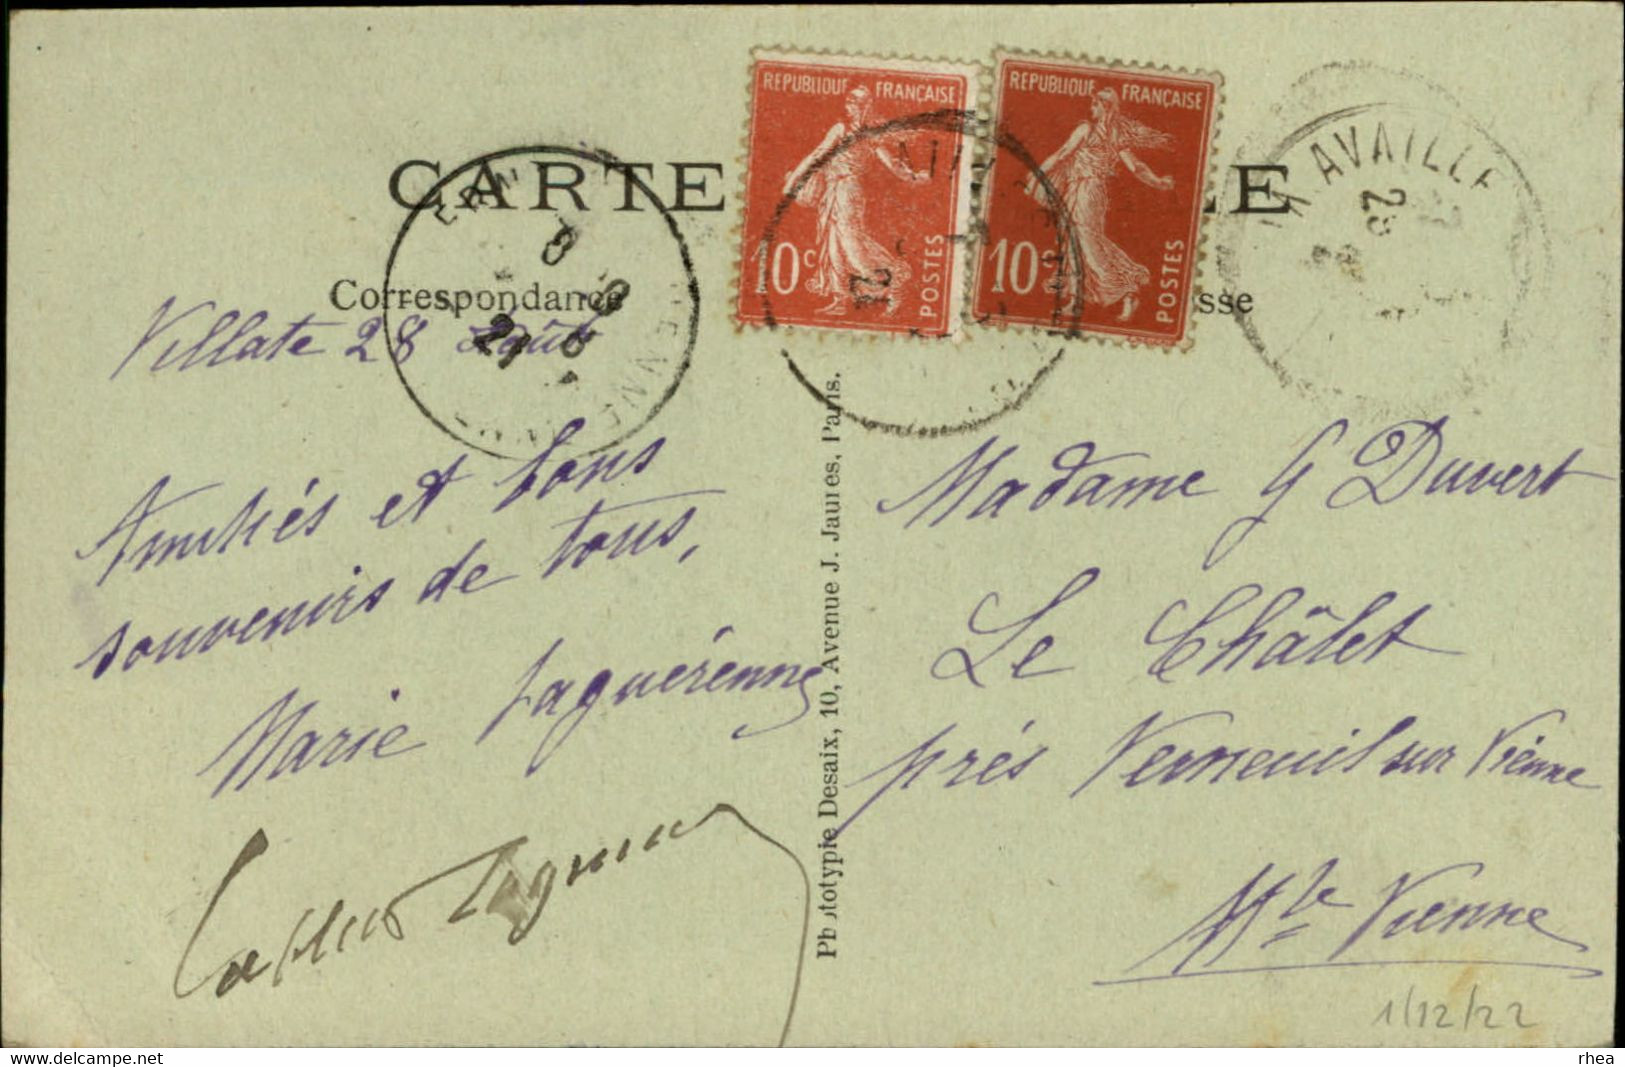 CARTE
LE
Correspondance
sse
REPUBLIQUE FRANÇAISE
10c
POSTES
REPUBLIQUE FRANÇAISE
10c
POSTES
AVAILLE
Villate 28 Août
Amitiés et bons
souvenirs de tous,
Marie Laguérenne
Phototypie Desaix, 10, Avenue J. Jaures, Paris.
Madame G Duvert
Le Châlet
près Verneuil sur Vienne
Hte Vienne
1/12/22
rhea